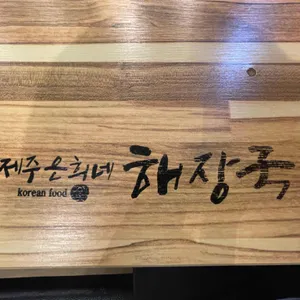 제주은희네 해장국
korean food